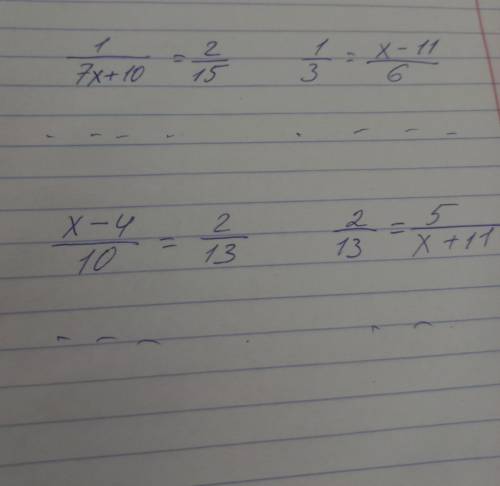 1/(7x+10) = 2/15    1/3 = (x-11)/6
(x-4)/10 = 2/13    2/13 = 5/(x+11)